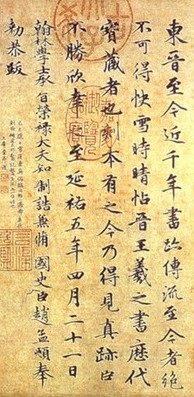 東晉至今近千年書跡傳流至今者絕
不可得快雪時晴帖晉王羲之書歷代
寶藏者也刻本有之今乃得見真跡臣
不勝欣幸之至延祐五年四月二十一日
翰林學士承旨榮祿大夫知制誥兼脩國史臣趙孟頫奉
勑恭跋